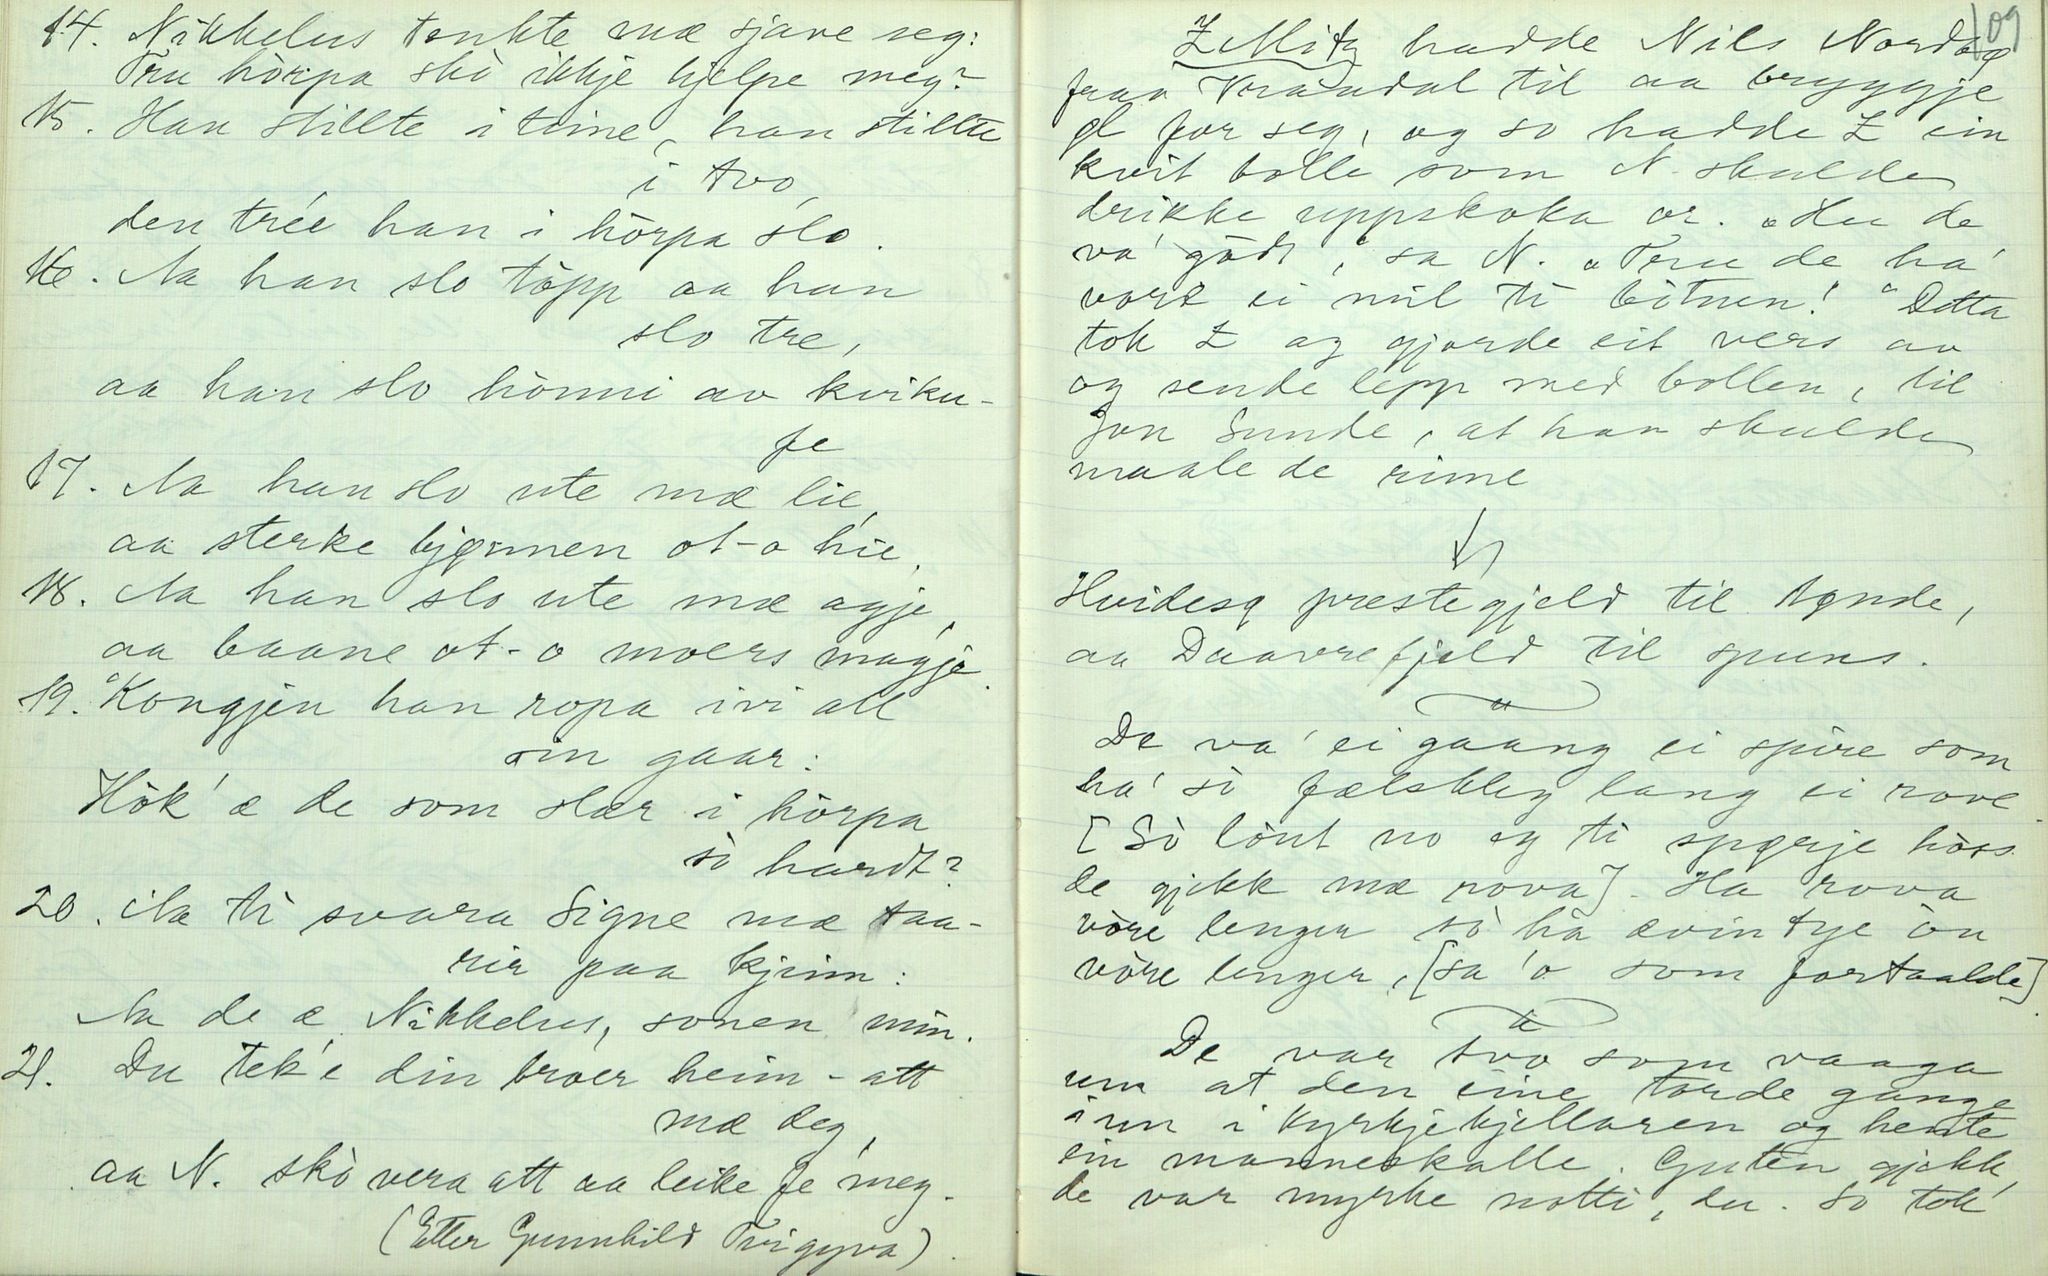 14. Nikkelus tenkte mæ sjave seg:
Tru hòrpa skò ikkje hjelpe meg?
15. Han stillte i eine, han stillte
i tvo,
den trée han i hòrpa slo.
16. Aa han slo tòpp aa han
slo tre,
aa han slo hònni av kviku-
fe
17. Aa han slo ute mæ lie,
aa sterke bjønnen ot-o hie.
18. Aa han slo ute mæ agje,
aa baane ot-o moers magje.
19. Kongjen han ropa ivi all
sin gaar:
Hòk' æ de som slær i hòrpa
sò hardt?
20. Aa ti svara Signe mæ taa-
rir paa kjinn:
Aa de æ Nikkelus, sonen min.
21. Du tek'e din broer heim-att
mæ deg,
aa N. skò vera att aa leike fe' meg.
(Etter Gunnhild Tvigyva).
109
Z Mitz hadde Nils Nordbø
fraa Vraadal til aa bryggje
øl for seg, og so hadde Z ein
kvit bolle som N. skulde
drikke uppskoka or. "Hu de
va' gòdt", sa N. "Tru de ha'
vort ei mil ti bòtnen!" Detta
tok Z og gjorde eit vers av
og sende lepp med bollen, til
Jon Sunde, at han skulde
maale de rime
Hvidesø prestegjeld til tønde,
aa Daavrefjeld til spuns.
De va' ei gaang ei spire som
ha' sò fælskleg lang ei rove
[Sò lònt no eg ti spørje hòss
de gjekk mæ rova]. Ha rova
vòre lenger sò hà ævintye òu
vòre lenger, [sa 'o som fortaalde]
De var tvo som vaaga
um at den eine torde gange
inn i kyrkjekjellaren og hente
ein manneskalle. Guten gjekk,
de var myrke notti, du. So tok